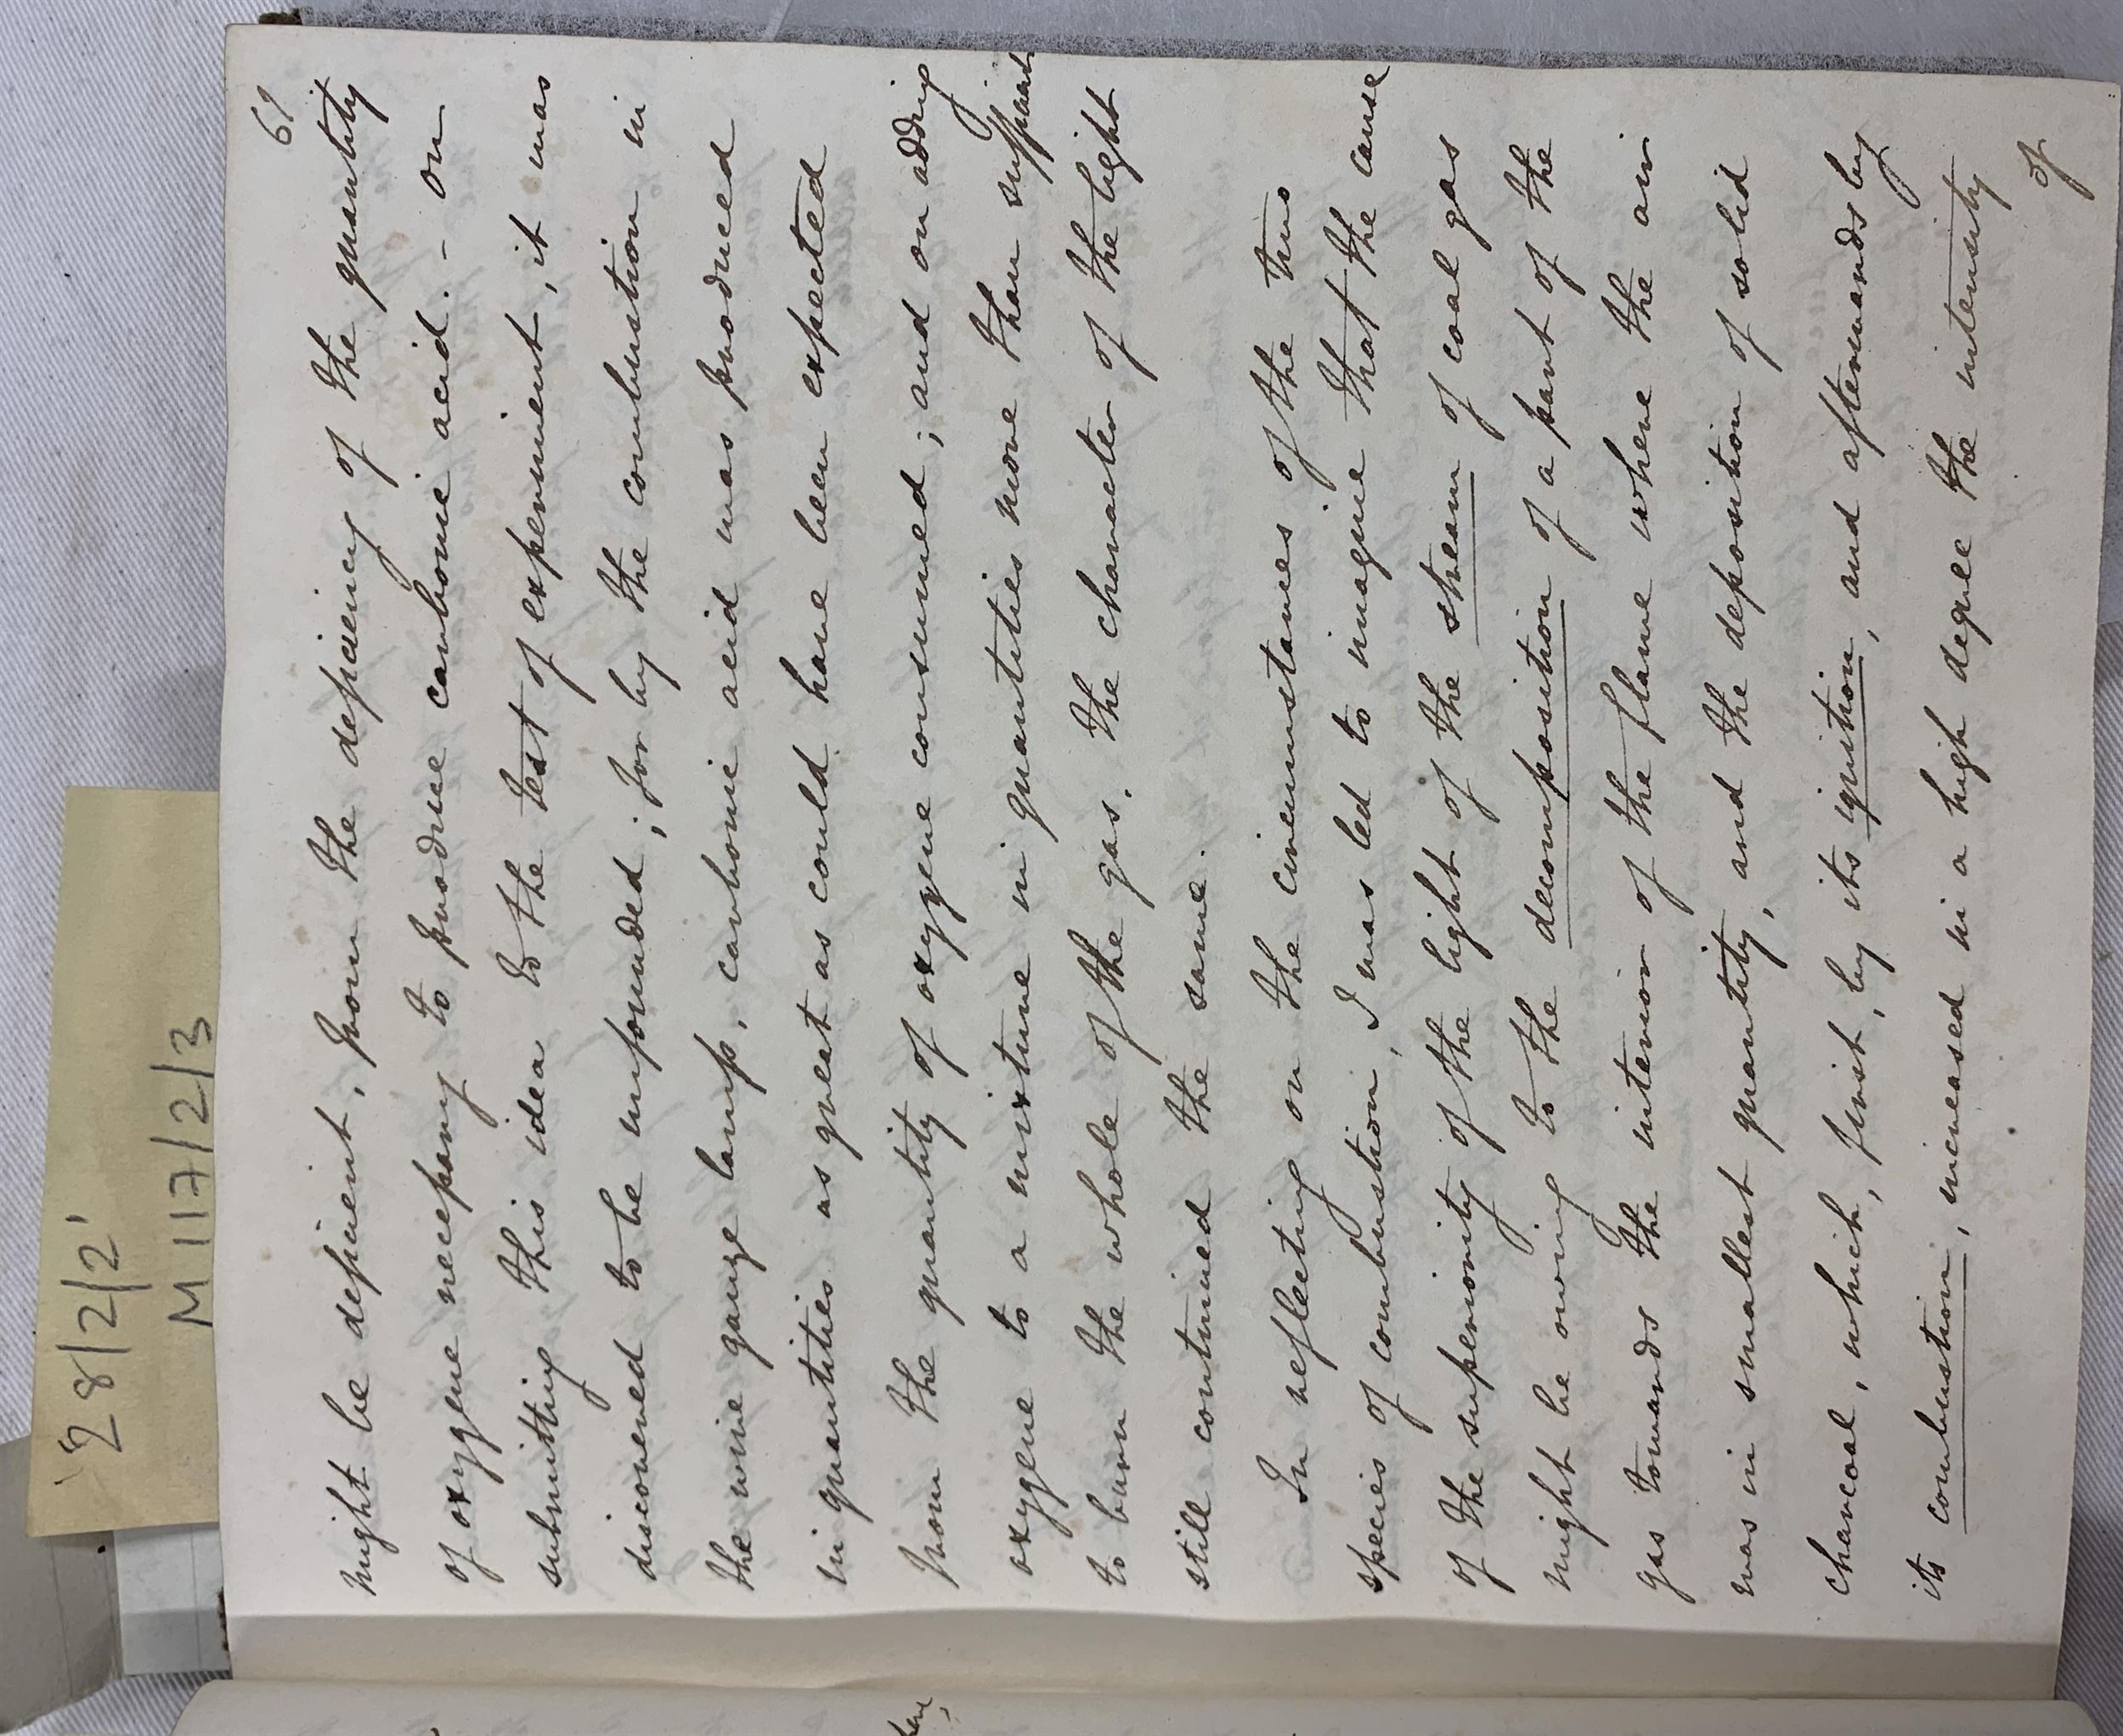 28/2/2'
M 117/2/3
69
might be deficient, from the deficiency of the quantity
of oxygene necessary to produce carbonic acid. - on
submitting this idea to the test of experiment, it was
discovered to be unfounded; for by the combustion in
the wire gauze lamp, carbonic acid was produced
in quantities as great as could have been expected
from the quantity of oxygene consumed; and on adding
oxygene to a mixture in quantities more than sufficient
to burn the whole of the gas, the character of the light
still continued the same.
In reflecting on the circumstances of the two
species of combustion, I was led to imagine that the cause
of the superiority of the light of the stream of coal gas
might be owing to the decomposition of a part of the
gas towards the interior of the flame where the air
was in smallest quantity, and the deposition of solid
charcoal, which, first, by its ignition, and afterwards by
its combustion, increased in a high degree the intensity
of